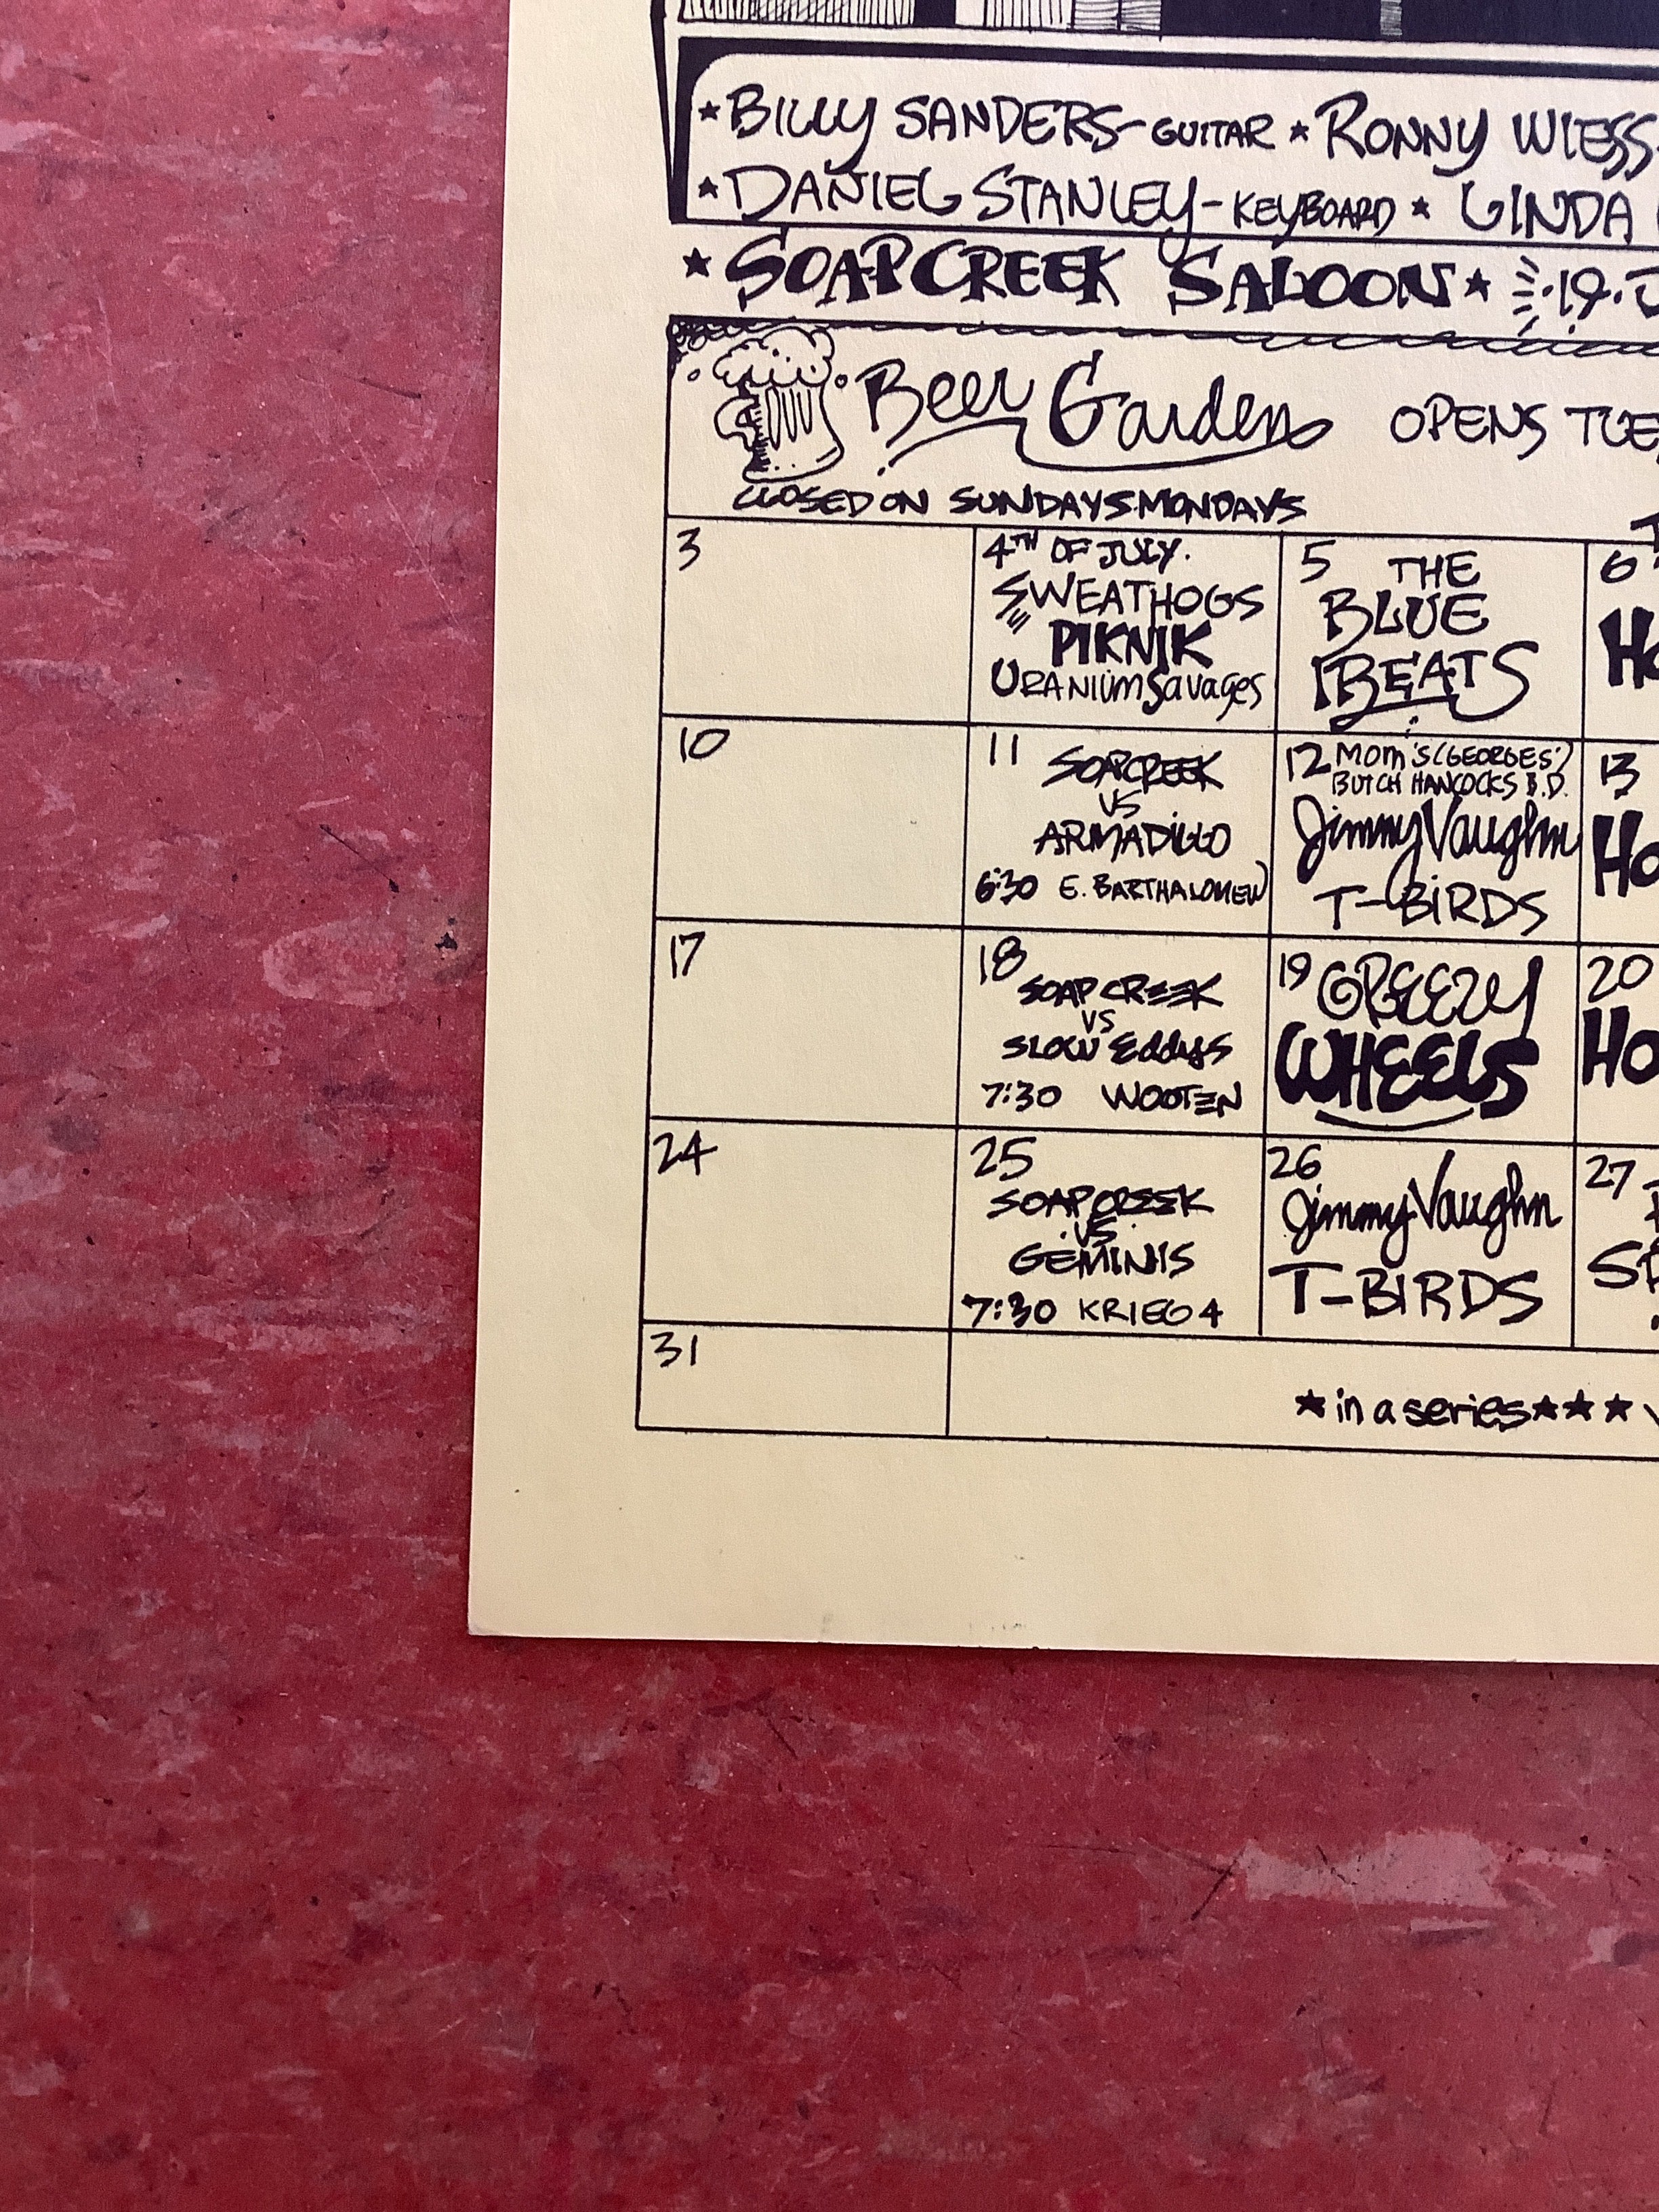 ★BILLY SANDERS-GUITAR ★RONNY WIESS
★DANIEL STANLEY-KEYBOARD ★ LINDA
★SOAPCREEK SALOON★ 19.J
Beer Garden OPENS TUES
CLOSED ON SUNDAYS.MONDAYS
3
4TH OF JULY.
SWEATHOGS
PIKNIK
URANIUM Savages
5 THE
BLUE
BEATS
6
HO
10
11 SOAPCREEK
VS
ARMADILLO
6:30 E. BARTHALOMEW
12 MOM'S (GEORGES')
BUTCH HANCOCKS B.D.
Jimmy Vaughn
T-BIRDS
13
HO
17
18
SOAP CREEK
VS
SLOW Eddys
7:30 WOOTEN
19 GREEZY
WHEELS
20
HO
24
25
SOAPCREEK
VS.
GEMINIS
7:30 KRIEG 4
26
Jimmy Vaughn
T-BIRDS
27
SP
31
★in a series★★★